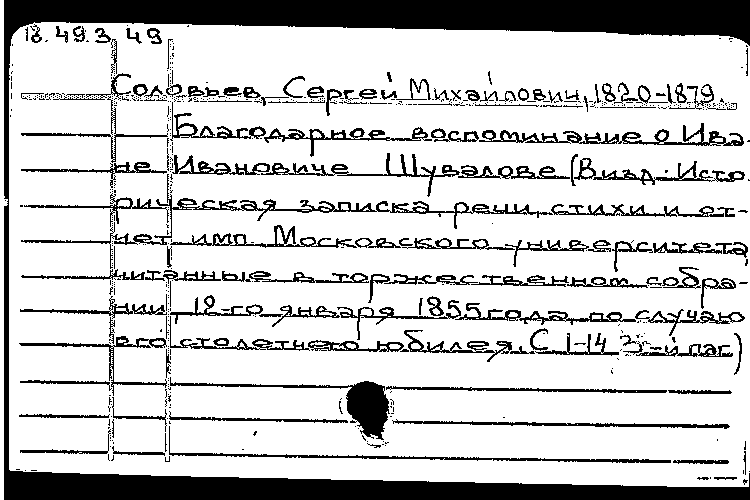 18.49.3 49
Соловьев, Сергей Михайлович, 1820-1879.
Благодарное воспоминание о Ива-
не Ивановиче Шувалове (В изд.: Исто-
рическая записка, речи, стихи и от-
чет имп. Московского университета,
читанные в торжественном собра-
нии, 12-го января 1855 года, по случаю
его столетнего юбилея. С 1-14 -й паг.)